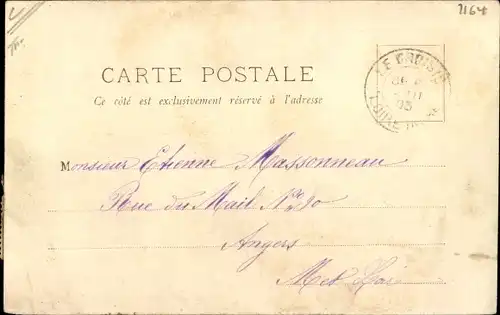 7164
CARTE POSTALE
Ce côté est exclusivement réservé à l'adresse
LE CROISIC
03
LOIRE
Monsieur Etienne Massonneau
Rue du Mail
Angers
Met Loi